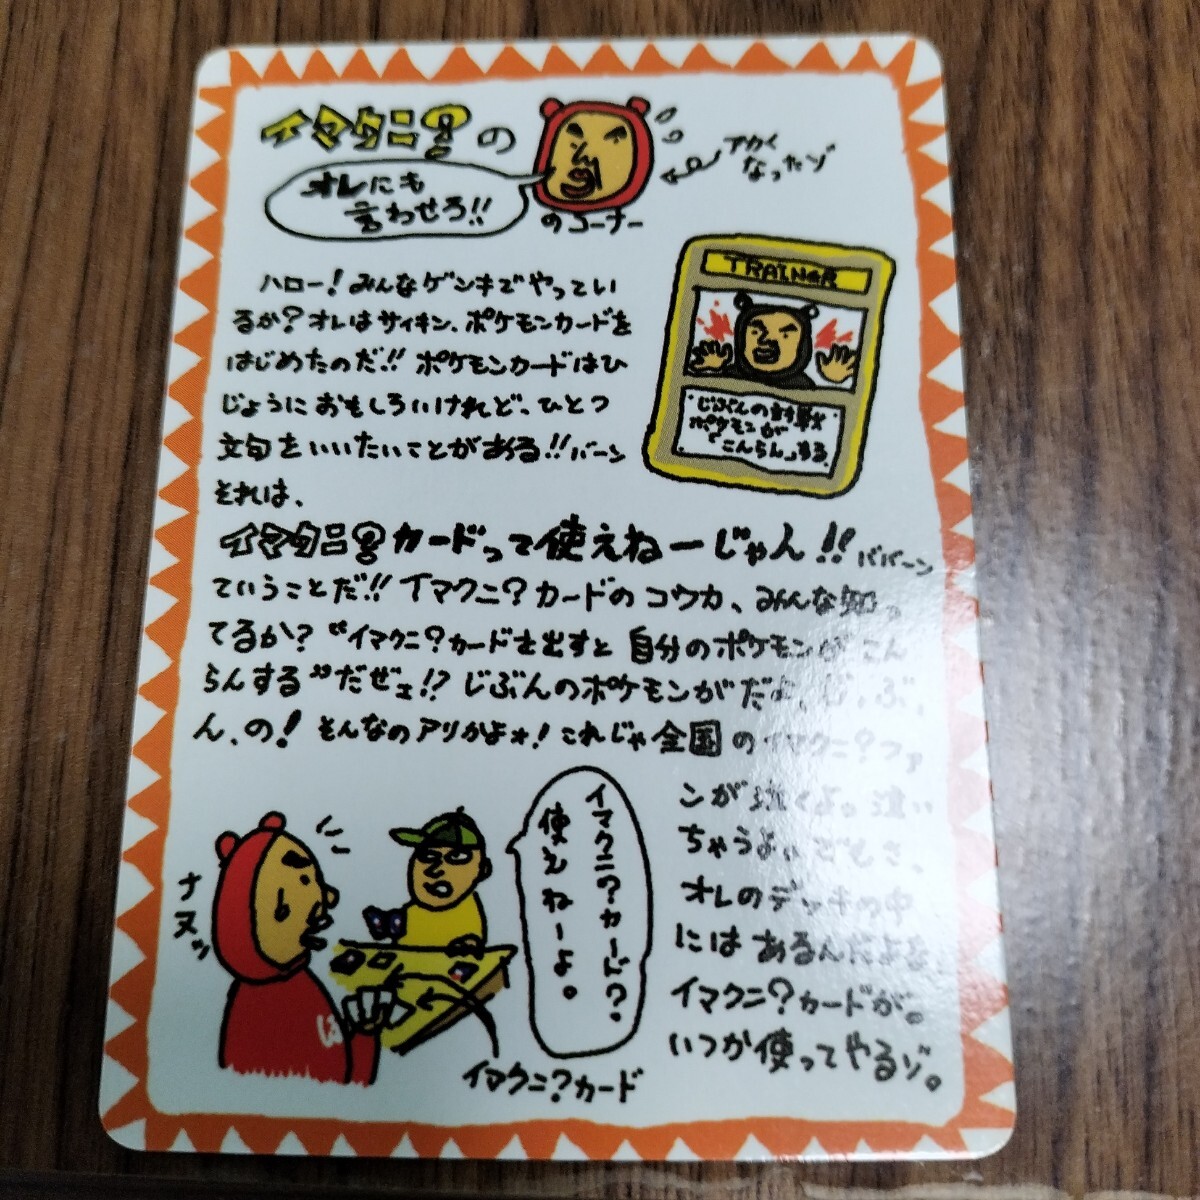 イマクニ?の
オレにも
言わせろ!!
のコーナー
アカく
なったゾ
ハロー!みんなゲンキでやってい
るか?オレはサイキン、ポケモンカードを
はじめたのだ!!ポケモンカードはひ
じょうにおもしろいけれど、ひとつ
文句をいいたいことがある!!バーン
それは、
TRAINER
じぶんの対戦
ポケモンが
「こんらん」する。
イマクニ?カードって使えねーじゃん!!ババーン
ていうことだ!!イマクニ?カードのコウカ、みんな知っ
てるか?“イマクニ?カードを出すと自分のポケモンがこん
らんする”だぜェ!?じぶんのポケモンがだよ、じ、ぶ、
ん、の!そんなのアリかよォ!これじゃ全国のイマクニ?ファ
ンが泣くよ。泣い
ちゃうよ。でもさ、
オレのデッキの中
にはあるんだよな
イマクニ?カードが。
いつか使ってやるゾ。
イマクニ?カード?
使えねーよ。
ナヌッ
イマクニ?カード